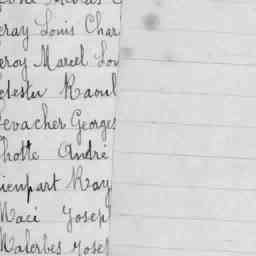 eray Louis Char
eroy Marcel Lou
elester Raoul
Levacher Georges
Lhotte André
ienpart Ray
Macé Josep
Malerbes Josep